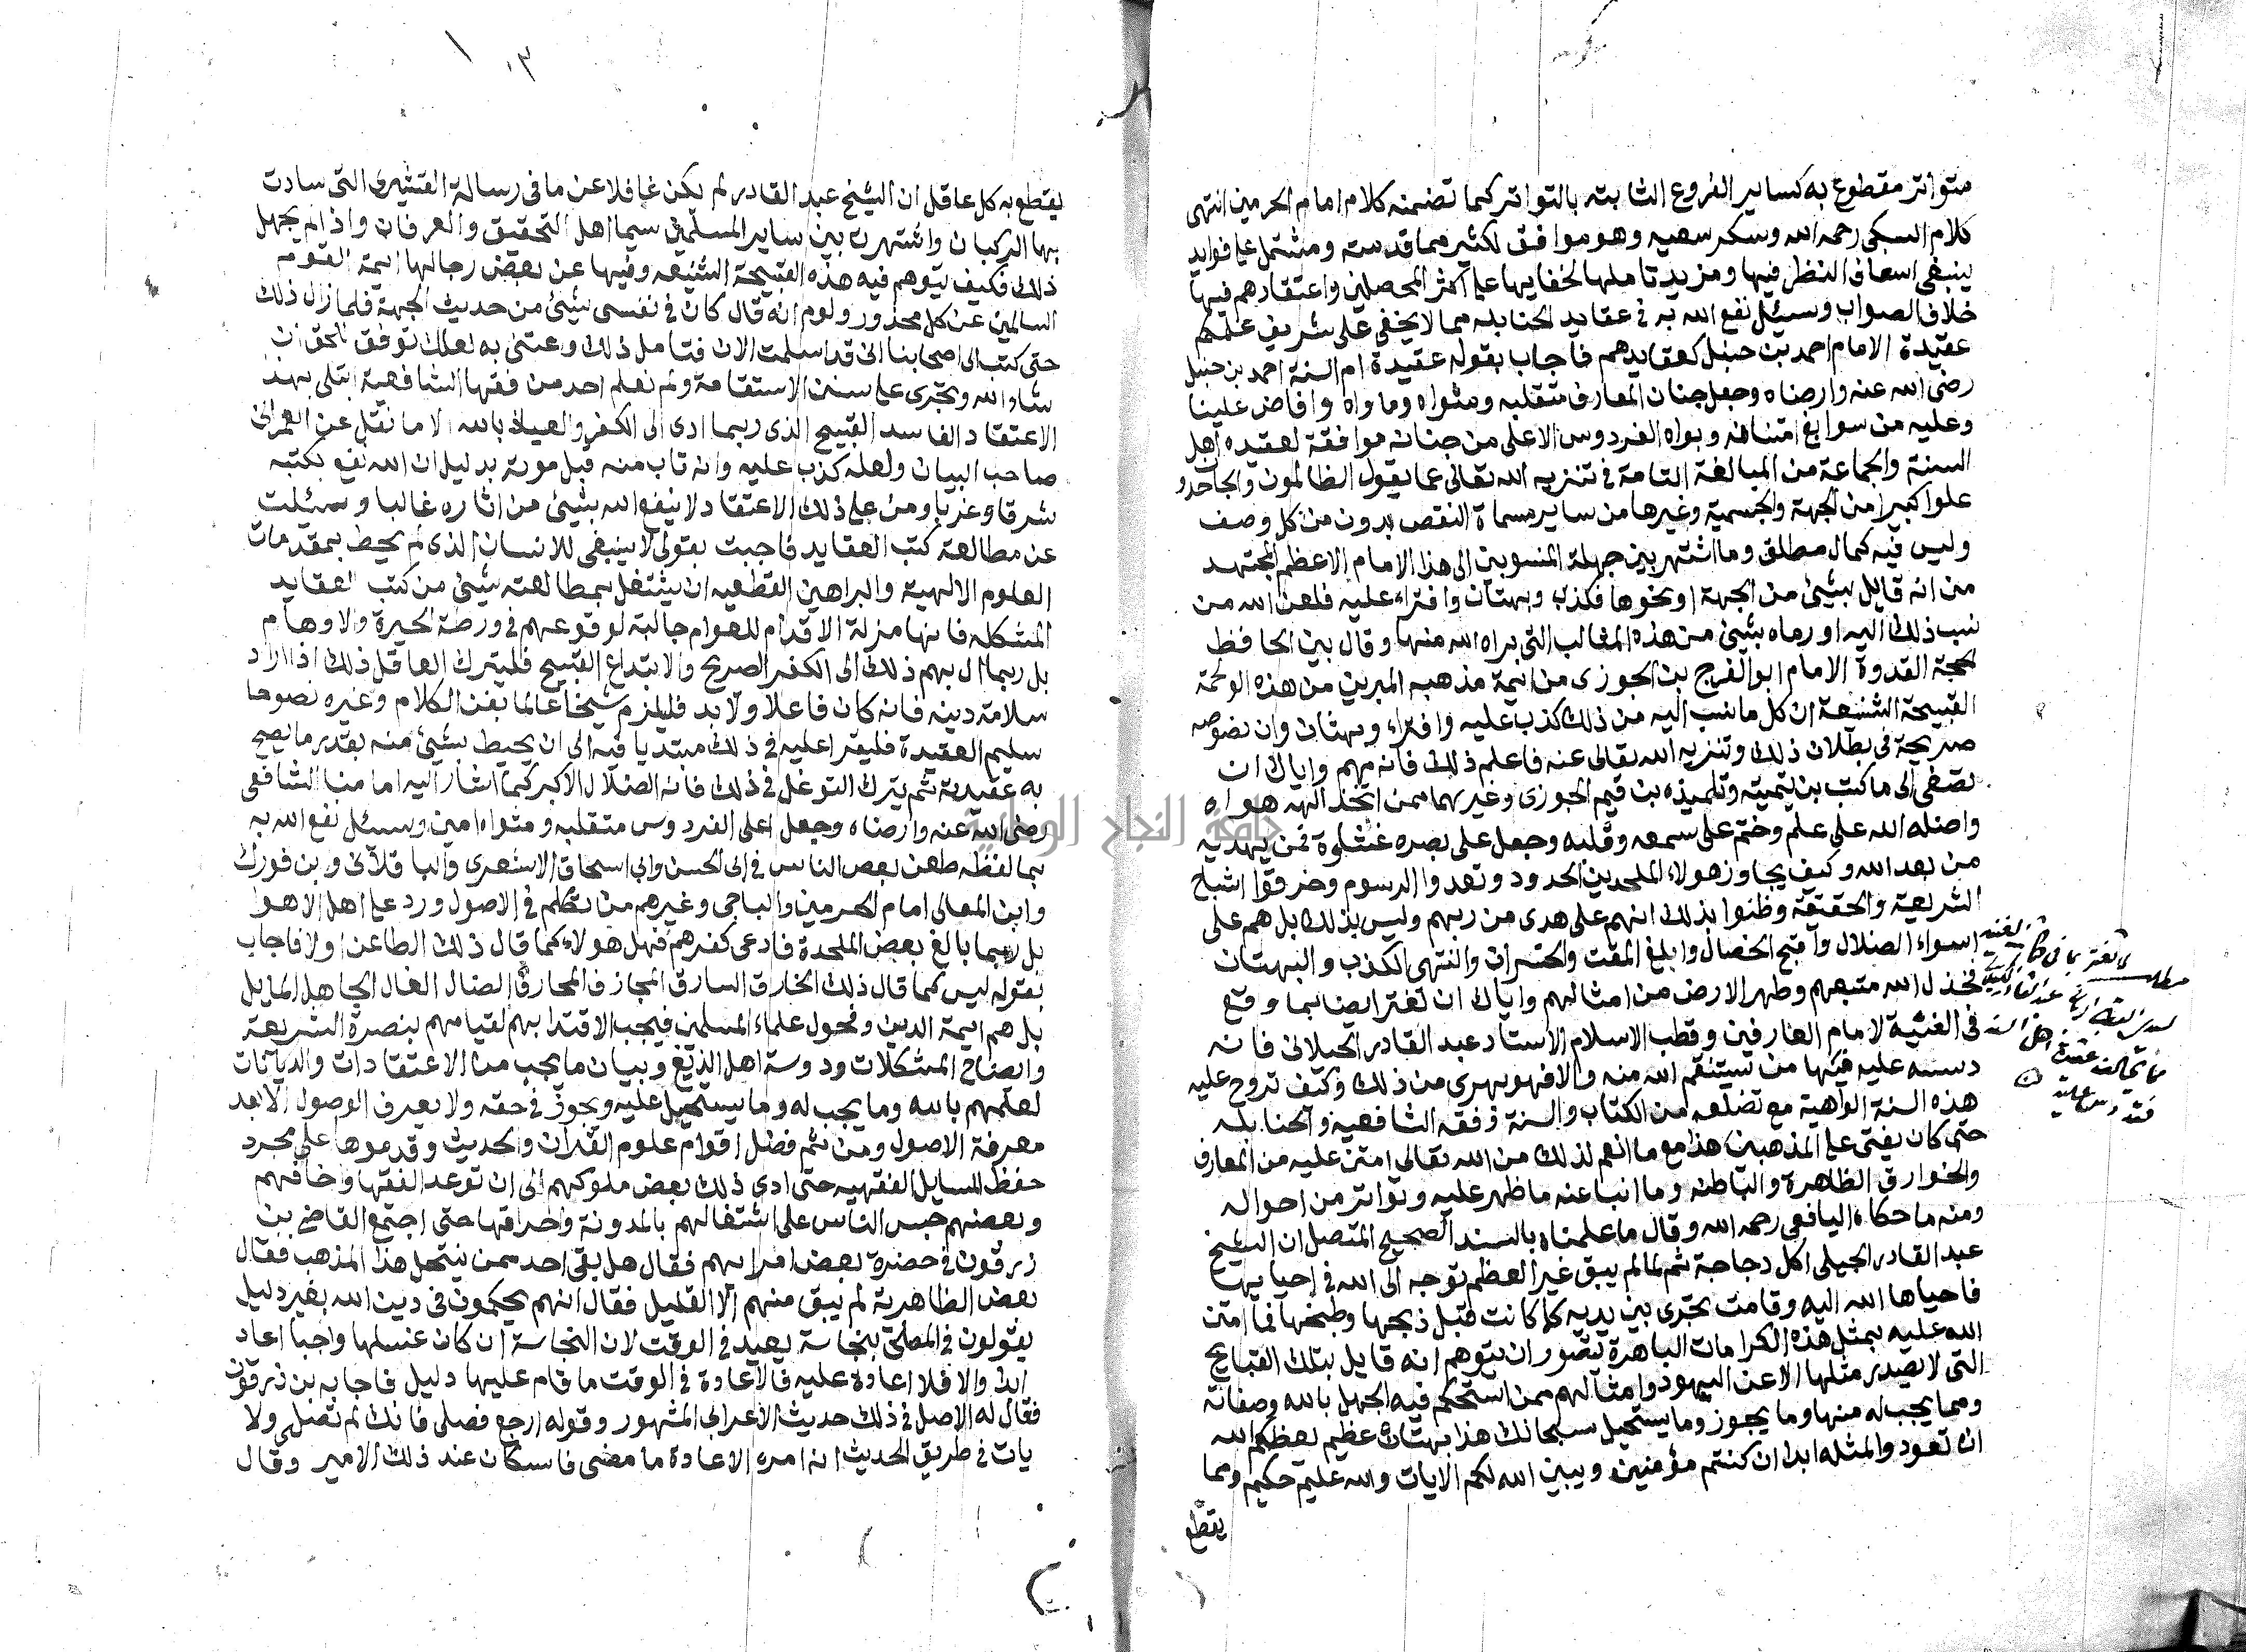 متواتر مقطوع به كساير الفروع الثابته بالتواتر كما تضمنه كلام امام الحرمين انتهى
كلام السبكى رحمه الله وشكر سعيه وهو موافق لكثير مما قدمته ومشتمل على فوايد
ينبغى امعان النظر فيها ومزيد تاملها لخفايها على اكثر المحصلين واعتقادهم فيها
خلاف الصواب وسيئل نفع الله به فى عقايد الحنابله مما لا يخفى على شريف علمكم
عقيدة الامام احمد بن حنبل كعقايدهم فاجاب بقوله عقيدة ام السنة احمد بن حنبل
رضى الله عنه وارضاه وجعل جنان المعارف متقلبه ومثواه وماواه وافاض علينا
وعليه من سوابغ امتنانه وبواه الفردوس الاعلى من جنانه موافقة لعقيده اهل
السنة والجماعة من المبالغة التامة فى تنزيه الله تعالى عما يقول الظالمون والجاحدون
علوا كبيرا من الجهة والجسمية وغيرها من ساير سماة النقص بدون من كل وصف
وليس فيه كمال مطلق وما اشتهر بين جهلة المنسوبين الى هذا الامام الاعظم المجتهد
من انه قايل بشيئ من الجهة او نحوها فكذب وبهتان وافتراء عليه فلعن الله من
نسب ذلك اليه او رماه بشيئ من هذه المثالب التى براه الله منها وقال بين الحافظ
الحجة القدوة الامام ابو الفرج بن الجوزى من ايمة مذهبه المبرين من هذه الوخمة
القبيحة الشنيعة ان كل ما نسب اليه من ذلك كذب عليه وافتراء وبهتان وان نضوصه
صريحة فى بطلان ذلك وتنزيه الله تعالى عنه فاعلم ذلك فانه مهم واياك ان
تصغى الى ما كتب بن تيمية وتلميذه بن قيم الجوزى وغيرهما ممن اتخذ الهه هواه
واضله الله على علم وختم على سمعه وقلبه وجعل على بصره غشاوة فمن يهديه
من بعد الله وكيف يجاوز هولاء الملحدين الحدود وتعدوا الرسوم وخرقوا اشياج
الشريعة والحقيقة وظنوا بذلك انهم على هدى من ربهم وليس بذلك بل هم على
اسواء الضلال واقبح الخصال وابلغ المقت والخسران وانتهى الكذب والبهتان
فخذل الله متبعهم وطهر الارض من امثالهم واياك ان تغتر ايضا بما وقع
فى الغنية لامام العارفين وقطب الاسلام الاستاد عبد القادر الجيلانى فانه
دسسه عليه فيها من سينتقم الله منه والا فهو بهرى من ذلك وكيف تروج عليه
هذه السنة الواهية مع تضلعه من الكتاب والسنة وفقه الشافعيه والحنابله
حتى كان يفتى على المذهبين هذا مع ما انعم لذلك من الله تعالى امتن عليه من المعارف
والخوارق الظاهرة والباطنه وما انبا عنه ما ظهر عليه وتواتر من احواله
ومنه ما حكاه اليافعى رحمه الله وقال ما علمناه بالسند الصحيح المتصل ان الشيخ
عبد القادر الجيلى اكل دجاجة ثم لما لم يبق غير العظم توجه الى الله فى احيايها
فاحياها الله اليه وقامت تجرى بين يديه كما كانت قبل ذبحها وطبخها فما امتن
الله عليه بمثل هذه الكرامات الباهرة تصور ان يتوهم انه قايل بتلك القبايح
التى لا يصدر مثلها الا عن اليهود وامثالهم ممن استحكم فيه الجهل بالله وصفاته
ومما يجب له منها وما يجوز وما يستحيل سبحانك هذا بهتان عظيم يعظكم الله
ان تعود والمثله ابدا ان كنتم مؤمنين ويبين الله لكم الايات والله عليم حكيم ومما
يقطع
مطلب
لا تغتر بما فى
عقيدة اهل السنة
يقطع به كل عاقل ان الشيخ عبد القادر لم يكن غافلا عن ما فى رسالة القشيرى التى سادت
بها الركبان واشتهرت بين ساير المسلمين سيما اهل التحقيق والعرفان واذا لم يجهل
ذلك فكيف يتوهم فيه هذه القبيحة الشنيعه وفيها عن بعض رجالها ايمة القومه
السالمين عن كل محذور ولوم انه قال كان فى نفسى شيئ من حديث الجهة فلما زال ذلك
حتى كتب الى اصحابنا انى قد اسلمت الان فتامل ذلك واعتنى به لعلك توفق للحق ان
شاء الله وتجرى على سنن الاستقامة ولم نعلم احد من فقها الشافعية ابتلى بهذا
الاعتقاد الفاسد القبيح الذى ربما ادى الى الكفر والعياذ بالله الا ما نقل عن العمرانى
صاحب البيان ولعله كذب عليه وانه تاب منه قبل موته بدليل ان الله نفع بكتبه
شرقا وغربا ومن على ذلك الاعتقاد لا ينفع الله بشيئ من اثاره غالبا وسئلت
عن مطالعة كتب العقايد فاجبت بقولى لا ينبغى للانسان الذى لم يحط بمقدمات
العلوم الالهية والبراهين القطعيه ان يشتغل بمطالعته شيئ من كتب العقايد
المشكله فانها مزلة الاقدام للعوام جالبة لوقوعهم فى ورطة الحيرة والاوهام
بل ربما ال بهم ذلك الى الكفر الصريح والابتداع القبيح فليترك العاقل ذلك اذا اراد
سلامة دينه فانه كان فاعلا ولا بد فليلزم شيخا عالما بفن الكلام وغيره نصوحا
سليم العقيدة فليقرا عليه فى ذلك مبتديا فيه الى ان يحيط بشيئ منه بقدر ما يصح
به عقيدته ثم يترك التوغل فى ذلك فانه الضلال الاكبر كما اشار اليه امامنا الشافعى
رضى الله عنه وارضاه وجعل اعلى الفردوس متقلبه ومثواه امين وسيئل نفع الله به
بما لفظه طعن بعض الناس فى ابى الحسن وابى اسحاق الاشعرى والباقلانى وبن فورك
وابن المعالى امام الحرمين والباجى وغيرهم من تكلم فى الاصول ورد على اهل الاهوا
بل ربما بالغ بعض الملحدة فادعى كفرهم فهل هولاء كما قال ذلك الطاعن اولا فاجاب
بقوله ليس كما قال ذلك الخارق السارق المجازف المحارق الضال الغال الجاهل المايل
بل هم ايمة الدين وفحول علماء المسلمين فيجب الاقتدا بهم لقيامهم بنصرة الشريعة
وايضاح المشكلات ودوسة اهل الزيغ وبيان ما يجب من الاعتقادات والديانات
لعلمهم بالله وما يجب له وما يستحيل عليه ويجوز فى حقه ولا يعرف الوصول الا بعد
معرفة الاصول ومن ثم فضل اقوام علوم القران والحديث وقدموها على مجرد
حفظ المسايل الفقهيه حتى ادى ذلك بعض ملوكهم الى ان توعد الفقها وخافهم
وبعضهم حبس الناس على اشتغالهم بالمدونة واحراقها حتى اجتمع القاضى بن
زرقون فى حضرة بعض امرايهم فقال هل بقى احد ممن ينتحل هذا المذهب فقال
بعض الظاهرية لم يبق منهم الا القليل فقال انهم يحكمون فى دين الله بغير دليل
يقولون فى المصلى بنجاسة يعيد فى الوقت لان النجاسة ان كان غسلها واجبا اعاد
ابدا والا فلا اعادة عليه فالاعادة فى الوقت ما قام عليها دليل فاجابه بن زرقون
فقال له الاصل فى ذلك حديث الاعرابى المشهور وقوله ارجع فصلى فانك لم تصلى ولا
يات فى طريق الحديث انه امره الاعادة ما مضى فاسكان عند ذلك الامير وقال
جامعة النجاح الوطنية